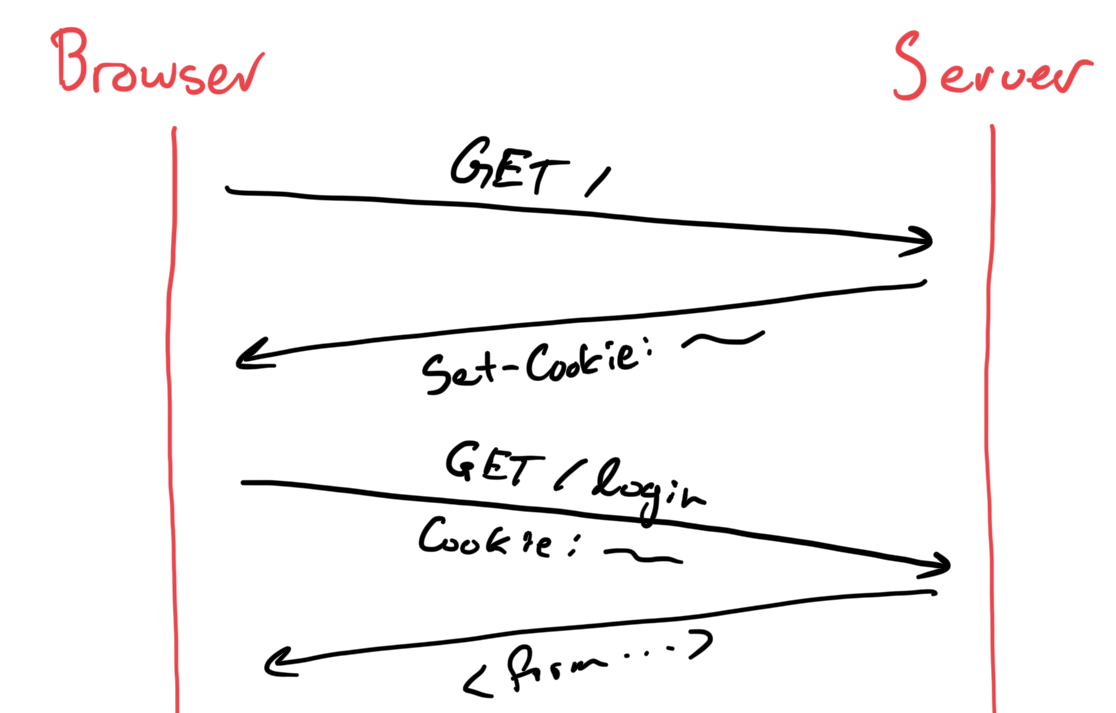 Browser Server
GET /
Set-Cookie:
GET /login
Cookie:
<form...>